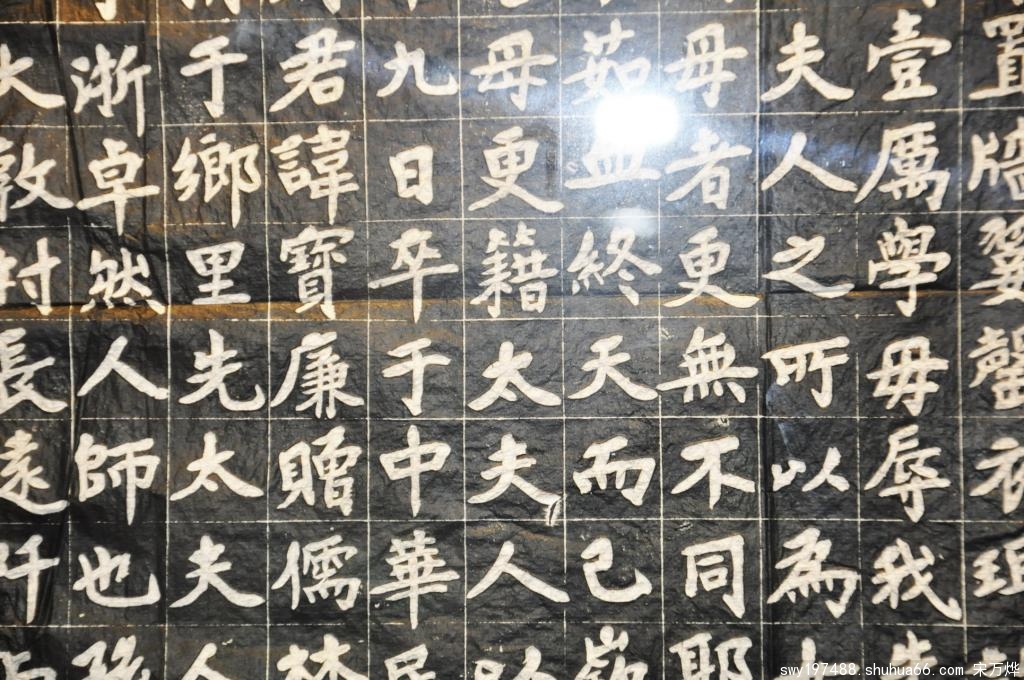 壹厲學毋辱我
夫人之所以為
母者更無不同耶
茹血終天而已
母更籍太夫人以
九日卒于中華民
君諱寶廉贈儒林
于鄉里先太夫人
浙卓然人師也孫
大敦
長遠
swy197488.shuhua66.com 宋万烨